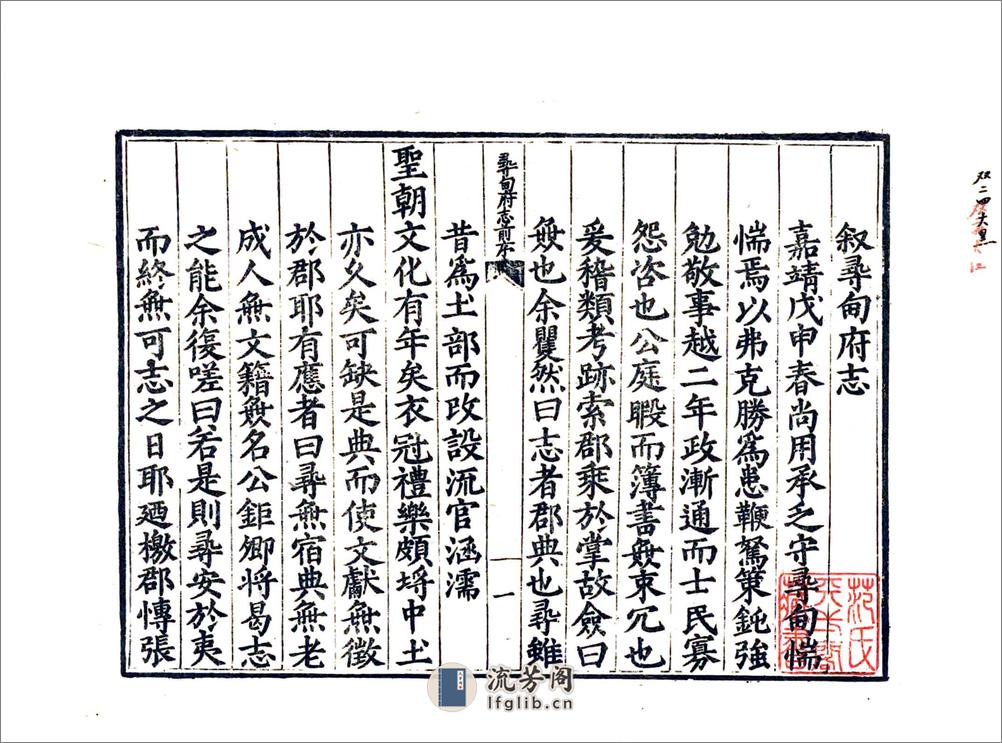 叙尋甸府志
嘉靖戊申春尚用承乏守尋甸惴
惴焉以弗克勝爲患鞭駑策鈍強
勉敬事越二年政漸通而士民寡
怨咨也公庭暇而簿書無束冗也
爰稽類考跡索郡乘於掌故僉曰
無也余矍然曰志者郡典也尋雖
尋甸府志前序 一
昔爲土部而改設流官涵濡
聖朝文化有年矣衣冠禮樂頗埒中土
亦久矣可缺是典而使文獻無徵
於郡耶有應者曰尋無宿典無老
成人無文籍無名公鉅卿將曷志
之能余復嗟曰若是則尋安於夷
而終無可志之日耶廼檄郡慱張
流芳阁
lfglib.cn